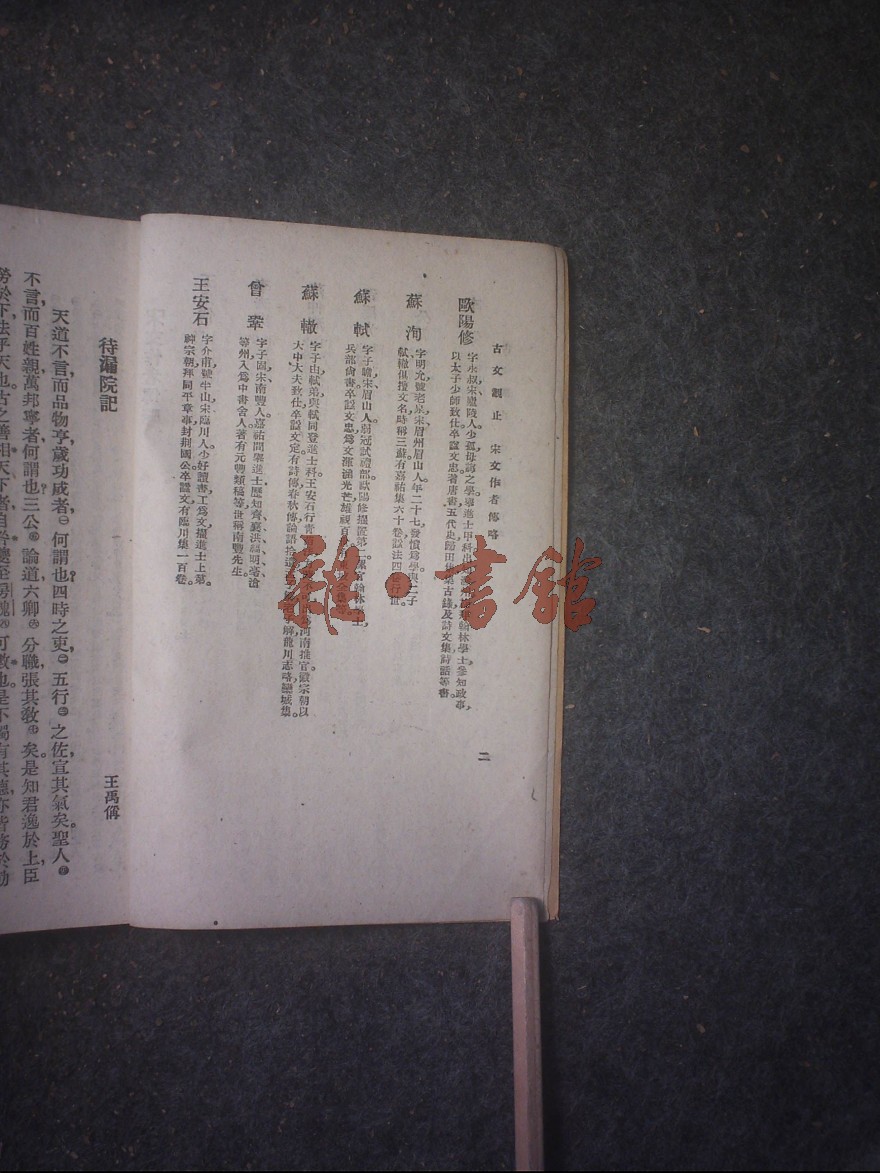 古文觀止　宋文作者傳略
二
歐陽修
字永叔宋廬陵人少孤母誨之學舉進士甲科
翰林學士參知政事,
以太子少師致仕卒諡文忠著唐書,五代史
集古錄及詩文集詩話等書
蘇洵
字明允號老泉宋眉州眉山人年二十七,發憤爲學與二子
軾轍俱擅文名時稱三蘇有嘉祐集六十卷諡法四卷行世
蘇軾
字子瞻宋眉山人弱冠試禮部歐陽修擢置第二
兵部尙書卒諡文忠爲文渾涵光芒雄視百
蘇轍
字子由軾弟與軾同登進士科王安石行靑
爲河南推官徽宗朝以
大中大夫致仕卒諡文定有詩傳春秋傳論語拾遺
解龍川志略欒城集。
曾鞏
字子固,宋南豐人。嘉祐間舉進士歷知齊襄洪福明亳滄
等州入爲中書舍人著有元豐類稿等世稱南豐先生。
王安石
字介甫號半山宋臨川人少好讀書,工爲文擢進士上第。
神宗朝拜同平章事封荆國公卒諡文有臨川集一百卷。
雜·書館
待漏院記
王禹偁
天道不言而品物亨歲功成者㊀何謂也四時之吏,㊁五行㊂之佐宣其氣矣聖人
不言而百姓親萬邦寧者何謂也三公論道六卿分職張其敎矣。是知君逸於上臣
勞於下,法乎天也古之善相天下者自咎夔至房魏可數也是不獨有其德亦皆務於勤